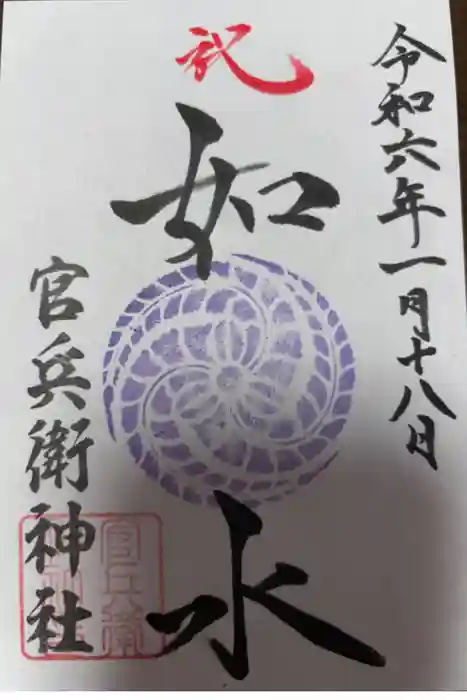 令和六年一月十八日
祝
如水
官兵衛神社
官兵衛